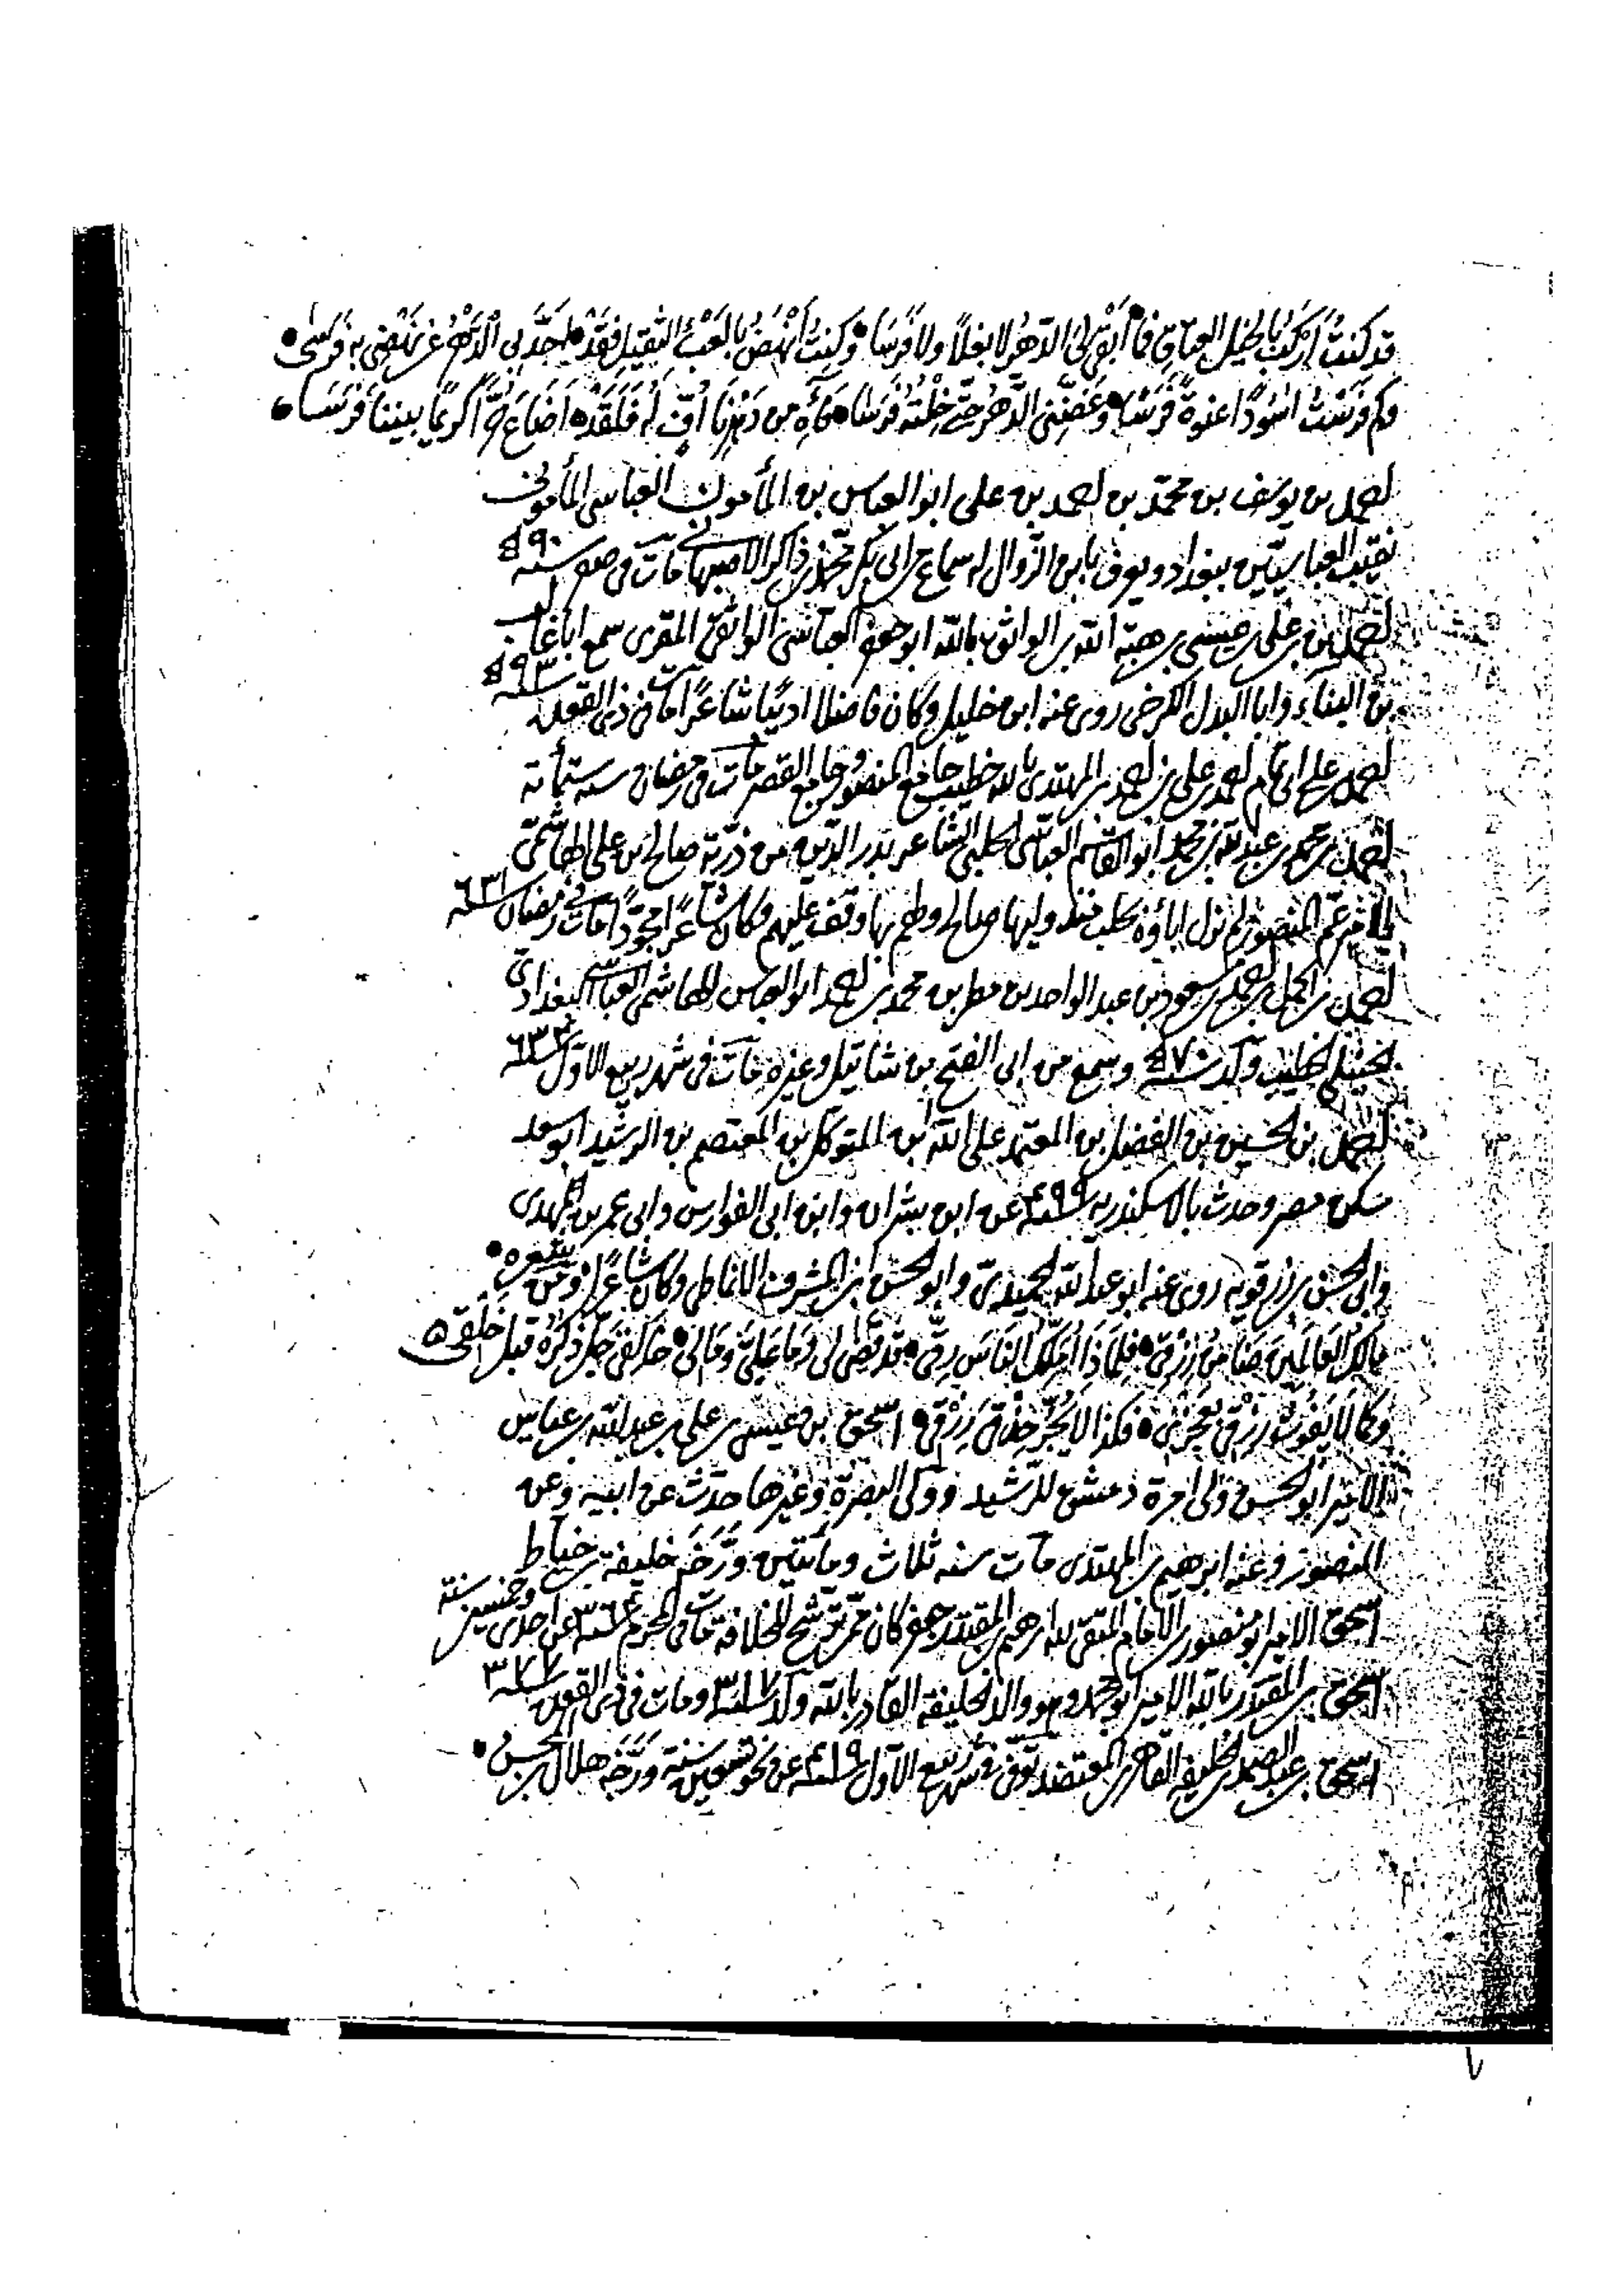 قد كنتُ أركبُ بالخيل العتاق فما • أبقى لى الدهرُ لا بغلاً ولا فَرَسَا • وكنتُ أنهضُ بالعبْ الثقيل فقَدْ • الدَّهرُ عن نهضى به
وكم فرَسَتْ اسُودًا عنوةً فَرَسَا • وعَضَّنى الدَّهر حتّى خِلْتُه فَرَسَا • من دَهْرِنَا أُفٍّ له فلَقَدْ • اضَاعَ كريمًا بيننا فَرَسَا •
احمد بن يوسف بن محمّد بن احمد بن على ابو العباس بن المأمون العباسى المأمونى
نقيب العباسيّين ببغداد ويعرف بابن الزّوال له سماع من ابى بكر محمّد بن ذاكر الاصبهانى مات فى صفر سنة ٥٩٠
احمد بن على بن عيسى بن هبة الله بن الواثق بالله ابو جعفر العباسى الواثقى المقرى سمع ابا غالب
بن البناء وابا البدل الكرخى روى عنه ابن خليل وكان فاضلا اديبًا شاعرًا مات فى ذى القعدة سنة ٥٩٣
احمد بن على بن احمد بن على بن احمد بن المهتدى بالله خطيب جامع المنصور وجامع القصر مات فى رمضان سنة ستمأئة
احمد بن محمد بن عبد الله بن محمد ابو القاسم العباسى الحلبى الشاعر بدر الدين من ذرّية صالح بن على الهاشمى
عمّ المنصور لم تزل اباؤه بحلب منذ وليها صالح ولهم بها وقف عليهم وكان شاعرًا مجوّدًا مات فى رمضان سنة ٦٣١
احمد بن احمد بن مسعود بن عبد الواحد بن مطر بن محمد بن احمد ابو العباس الهاشمى العباسى البغدادىّ
الحنبلى الخطيب ولد سنة وسمع من ابى الفتح بن شاتيل وغيره مات فى شهر ربيع الاوّل سنة
احمد بن الحسين بن الفضل بن المعتمد على الله ابن المتوكل بن المعتصم بن الرشيد ابو سعد
سكن مصر وحدث بالاسكندريه سنة ٤٩٩ عن ابن بشران وابن ابى الفوارس وابى عمر بن المهدى
وابى الحسن بن رزقويه روى عنه ابو عبد الله الحميدىّ وابو الحسن ابن المشرف الانماطى وكان شاعرًا ومن شعره •
مالك العالمين ضامنُ رزقى • فلماذا اُمَلِّكُ الناسَ رِقّى • قد قضى لى وما علىَّ ومالى • خالقى جلّ ذكرُه قبل خلقى ٥
وكما لا يفوتُ رزقى بعجزى • فكذا لا يجُرّ حذقى رزقى • اسحق بن عيسى بن على بن عبد الله بن عباس
الامير ابو الحسن ولى امرة دمشق للرّشيد وولى البصرة وغيرها حدّث عن ابيه وعن
المنصور وعنه ابرهيم بن المهتدى مات سنة ثلاث ومائتين ورّخه خليفة بن خيّاط
اسحق الامير ابو منصور بن الامام المتقى لله ابرهيم بن المقتدر جعفر كان ممّن ترشح للخلافة مات فى المحرم سنة عن احدى وخمسين سنة
اسحق بن المقتدر بالله الامير ابو محمد وهو والد الخليفة القادر بالله ولد سنة ٣١٧ ومات فى ذى القعدة سنة ٣٧٧
اسحق بن عبد الصمد الخليفة القاهر بن المعتضد توفى فى شهر ربيع الاوّل سنة ٤١٩ عن نحو تسعين سنة ورّخه هلال بن المحسن •
٧